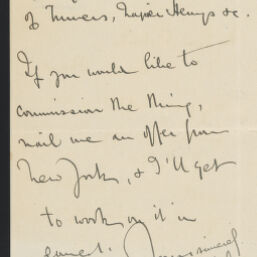 of Towers, Napier Hemys &c.
If you would like to
commission the thing,
mail me an offer from
New York, & I'll get
to work on it in
earnest. Yours sincerely